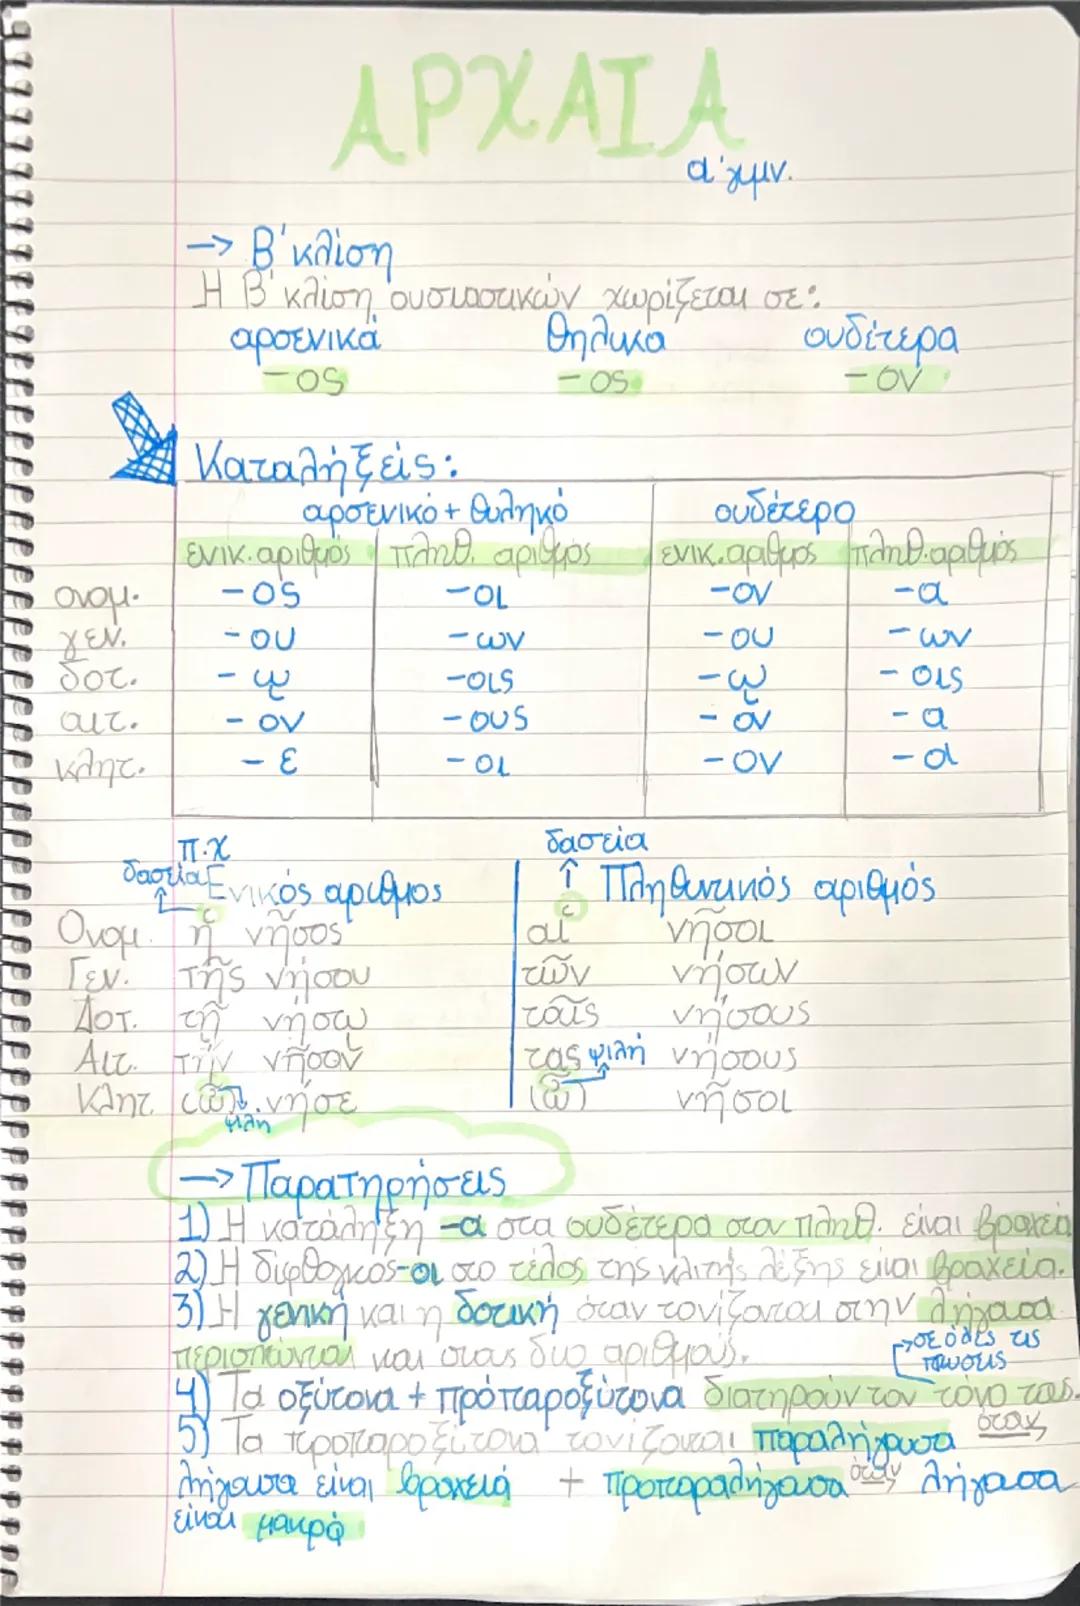 ΑΡΧΑΙΑ
α' γυμν.
→ Β' κλίση
Η Β' κλίση ουσιαστικών χωρίζεται σε:
αρσενικά θηλυκα ουδέτερα
-ος -ος -ον
Καταλήξεις:
αρσενικό + θυληκό ουδέτερο
ενικ. αριθμός πληθ. αριθμός ενικ. αριθμός πληθ. αριθμός
ονομ. -ος -οι -ον -α
γεν. -ου -ων -ου -ων
δοτ. -ῳ -οις -ῳ -οις
αιτ. -ον -ους -ον -α
κλητ. -ε -οι -ον -α
π.χ δασεία
δασεία Ενικός αριθμος ↑ Πληθυντικός αριθμός
Ονομ. ἡ νῆσος αἱ νῆσοι
Γεν. τῆς νήσου τῶν νήσων
Δοτ. τῇ νήσῳ ταῖς νήσους
Αιτ. τήν νῆσον τας ψιλή νήσους
Κλητ. (ὦ) νήσε (ὦ) νῆσοι
ψιλη
→ Παρατηρήσεις
1) Η κατάληξη -α στα ουδέτερα στον πληθ. είναι βραχεία
2) Η δίφθογκος -οι στο τέλος της κλιτής λέξης είναι βραχεία.
3) Η γενική και η δοτική όταν τονίζονται στην λήγουσα
περισπώνται και στους δυο αριθμούς.
→ σε όλες τις
πτώσεις
4) Τα οξύτονα + πρόπαροξύτονα διατηρούν τον τόνο τους.
5) Τα προπαροξύτονα τονίζονται παραλήγουσα όταν
λήγουσα είναι βραχειά + προπαραλήγουσα όταν λήγουσα
είναι μακρά